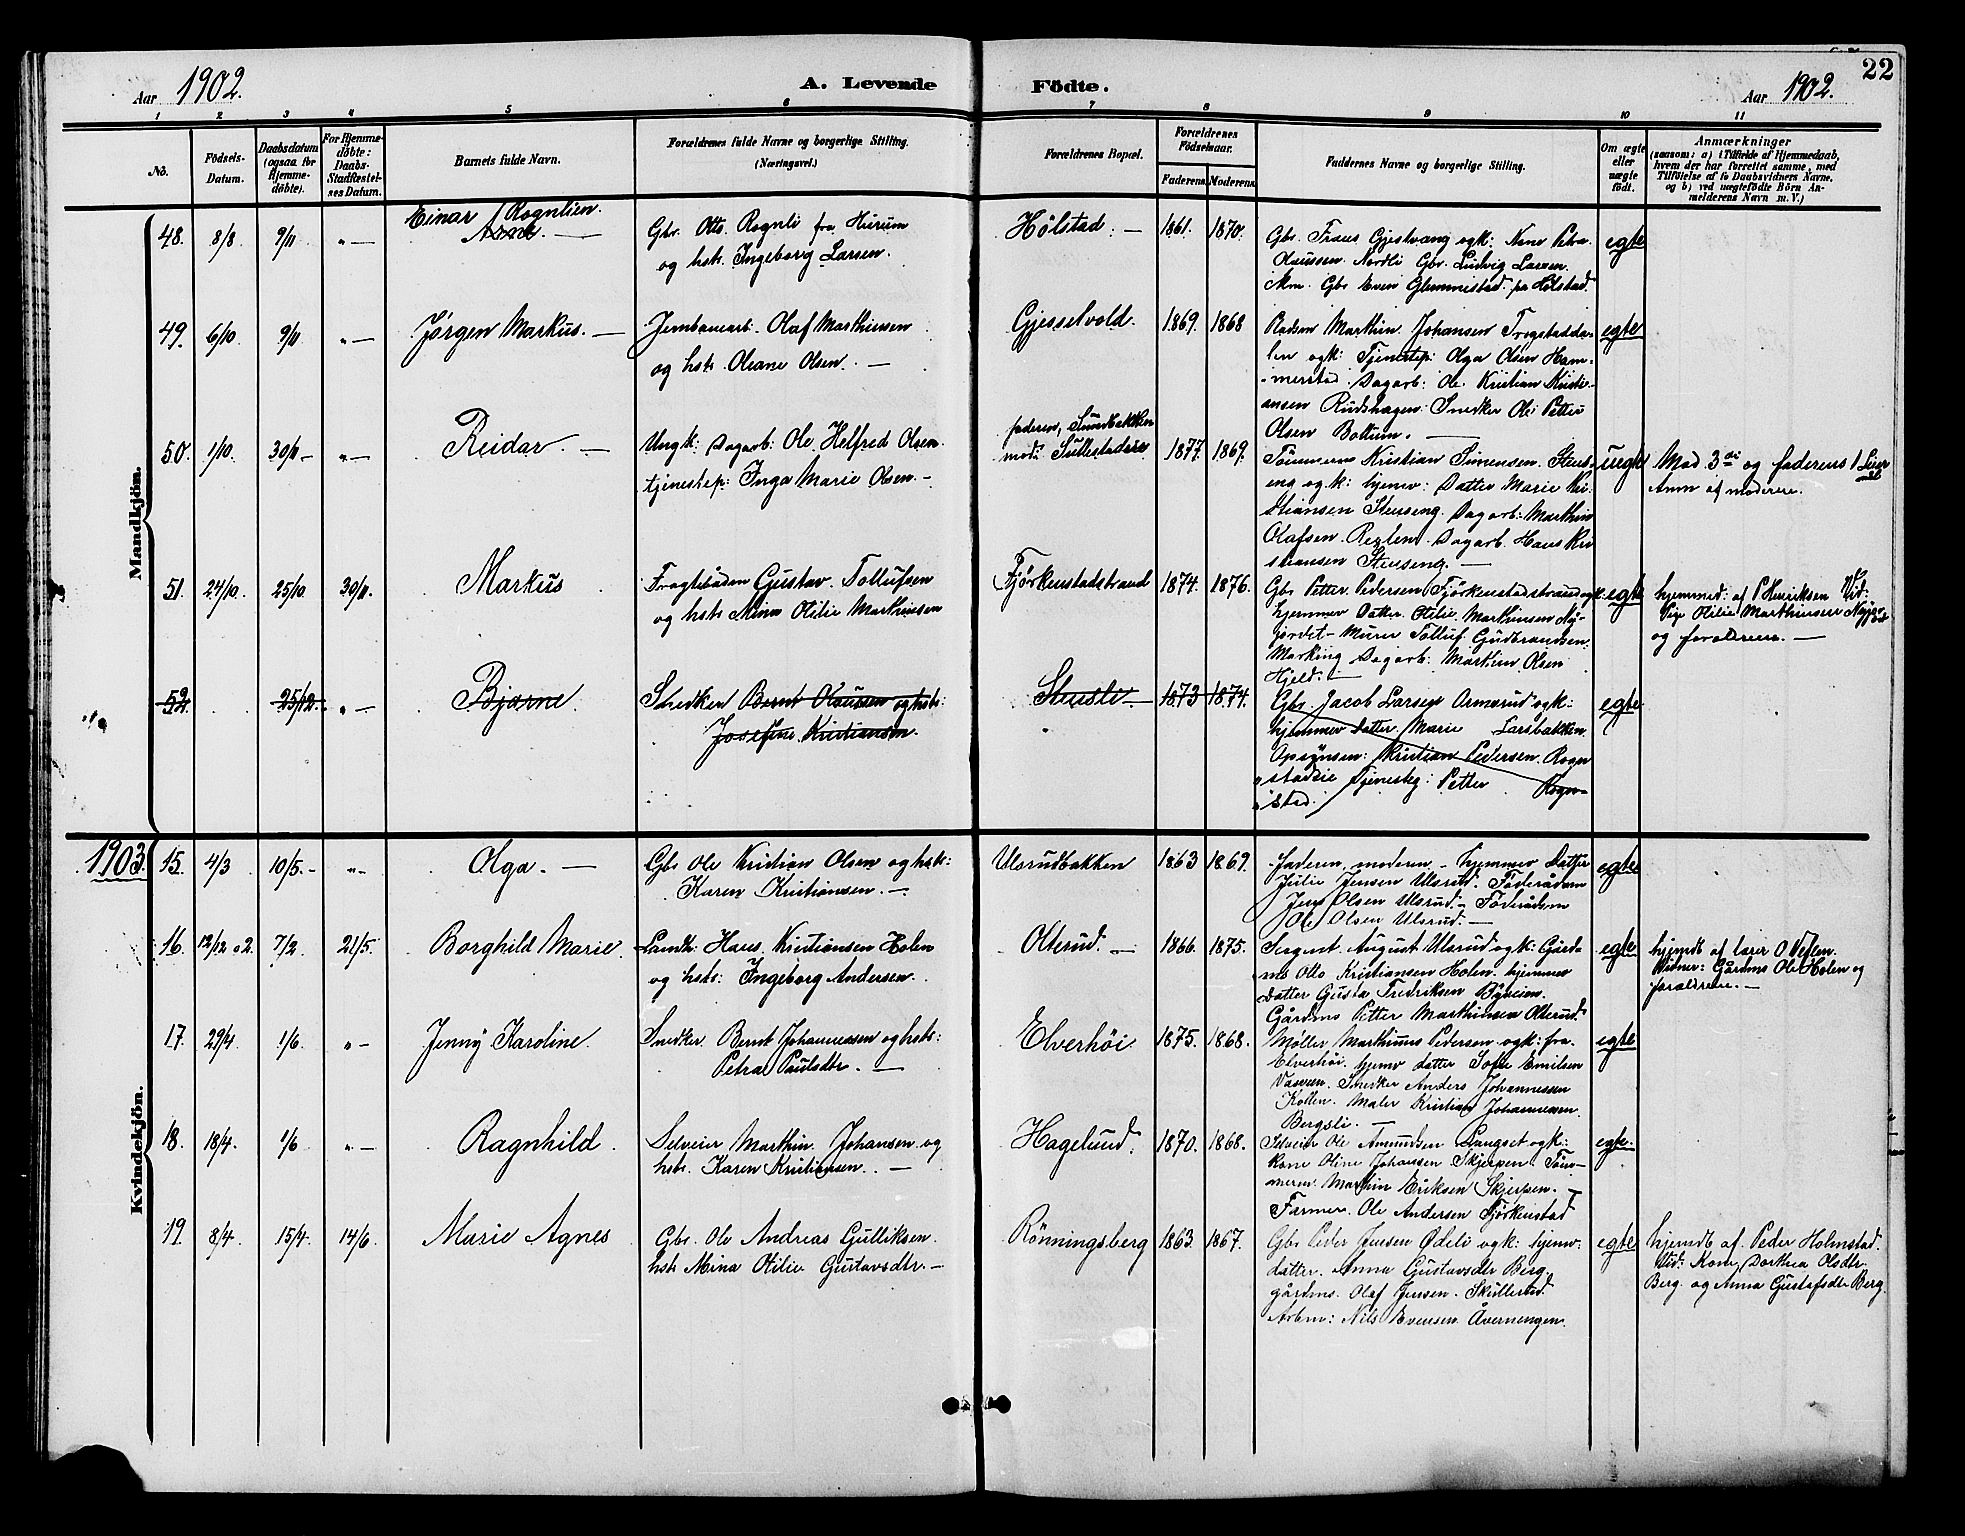 22
Aar 1902.
A. Levende
Födte.
Aar 1902.
1 2 3 4 5 6 7 8 9 10 11
No.
Födsels-
Datum.
Daabsdatum
(ogsaa for
Hjemme-
döbte).
For Hjemme-
döbte:
Daabs-
Stadfæstel-
ses Datum.
Barnets fulde Navn.
Forældrenes fulde Navne og borgerlige Stilling.
(Næringsvei.)
Forældrenes Bopæl.
Forældrenes
Födselsaar.
Faderens Moderens
Faddernes Navne og borgerlige Stilling.
Om ægte
eller
uægte
födt.
Anmærkninger
(saasom: a) i Tilfælde af Hjemmedaab,
hvem der har forrettet samme, med
Tilföielse af to Daabsvidners Navne,
og b) ved uægtefödte Börn An-
melderens Navn m. V.)
Mandkjön.
48. 8/8 9/11 " —
Einar Rognlien.
Arne. —
Gbr. Otto Rognli fra Hurum
og hstr. Ingeborg Larsen.
Hølstad. —
1861. 1870.
Gbr. Frans Gjestvang ogk: Kone Petra
Olaussen Nordli Gbr. Ludvig Larsen
Gbr Even Glemmestad pa Hølstad
egte
49. 6/10 9/11 " —
Jørgen Markus. —
Jernbanearb. Olaf Marthinsen
og hstr Oleane Olsen. —
Gjesselvold.
1869. 1868
Marthin Johansen Trogstadda-
len ogk: Tjenestep: Olga Olsen Ham-
merstad Dagarb: Ole Kristian Kristi-
ansen Rudshagen: Snedker Ole Petter
Olsen Bottum. —
egte
50. 1/10. 30/11 — " —
Reidar. —
Ungk: Dagarb: Ole Helfred Olsen
tjenestep: Inga Marie Olsen. —
faderen, Sundbakken
mod: Sullestadeie
1877. 1869.
Tømmerm Kristian Simensen Stens-
eng ogk: hjemv: Datter Marie Kri-
stiansen Stenseng. Dagarb: Marthin
Olafsen Dagarb. Hans Kri
stiansen Stenseng. —
uegte
Mod 3de og faderens 1 Leier
mål
Anm af moderen.
51. 24/10. 25/10 30/11.
Markus
Gustav Tollufsen
og hstr Mina Otilie Marthinsen
Fjörkenstadstrand
1874. 1876.
Gbr Petter Pedersen Fjörkenstadstrand ogk
hjemmev Datter Otilie Marthinsen Ny-
jordet — Murer Tolluf Gudbrandsen
Marking Dagarb: Marthin Olsen
Hjeld. —
egte
hjemmed: af P Henriksen Vid:
Pige Otilie Marthinsen
og forældrene. —
52. 25/12. " —
Bjarne
Snedker Bernt Olaussen og hstr:
Josefine Kristiansen.
Stensli —
1873 1874.
Gbr. Jacob Larsen Ormerud ogk:
hjemmev datter Marie Larsbakken
Opsynsm: Kristian Pedersen Rogn
stadeie Tjenesteg: Petter Rogn-
stad.
egte
1903.
Kvindekjön.
15. 4/3 10/5. — " —
Olga. —
Gbr Ole Kristian Olsen og hstr:
Karen Kristiansen. —
Ulsrudbakken
1863 1869.
Faderen, moderen — hjemmev Datter
Julie Jensen Ulsrud. Föderådsm
Jens Olsen Ulsrud — Föderådsm
Ole Olsen Ulsrud. —
egte
16. 12/12 02. 7/2. 21/5.
Borghild Marie.
Landh: Hans Kristiansen Holen
og hstr: Ingeborg Andersen.
Olterud. —
1866. 1875.
August Ulsrud ogk: Gård-
ms Otto Kristiansen Holen. hjemmev
datter Gusta Fredriksen Byveien.
Gårdms Petter Marthinsen Olterud.
egte
hjemdt af lærer O Veflen.
Vidner: Gårdms Ole Holen og
forældrene. —
17. 29/4 1/6 " —
Jenny Karoline.
Snedker Bernt Johannessen og hstr:
Petra Paulsdtr. —
Elverhöi
1875. 1868.
Møller Marthinus Pedersen ogk: fra
Elverhöi. hjemv datter Sofie Emilsen
Snedker Anders Johannessen
Kollen. Maler Kristian Johannessen
Bergsli. —
egte
18. 18/4. 1/6 " —
Ragnhild.
Selveier Marthin Johansen og
hstr. Karen Kristiansen. —
Hagelund.
1870. 1868.
Selveier Ole Amundsen Langset ogk:
kone Oline Johansen Skjerpen. Töm-
merm Marthin Eriksen Skjerpen. —
Farmer. Ole Andersen Fjörkenstad
egte.
19 8/4. 15/4. 14/6.
Marie Agnes
Gbr. Ole Andreas Gulliksen.
hstr Mina Otilie Gustavsdtr. —
Rönningsberg
1863. 1867.
Gbr Peder Jensen Ødeli ogk: hjemv.
datter. Anna Gustavsdtr Berg
gårdms. Olaf Jensen. Skullerud.
Arbm: Nils Evensen Åvernengen.
egte
hjemdt af. Peder Holmstad.
Vid: Kone Dorthea Olsdtr
Berg. og Anna Gustafsdtr Berg